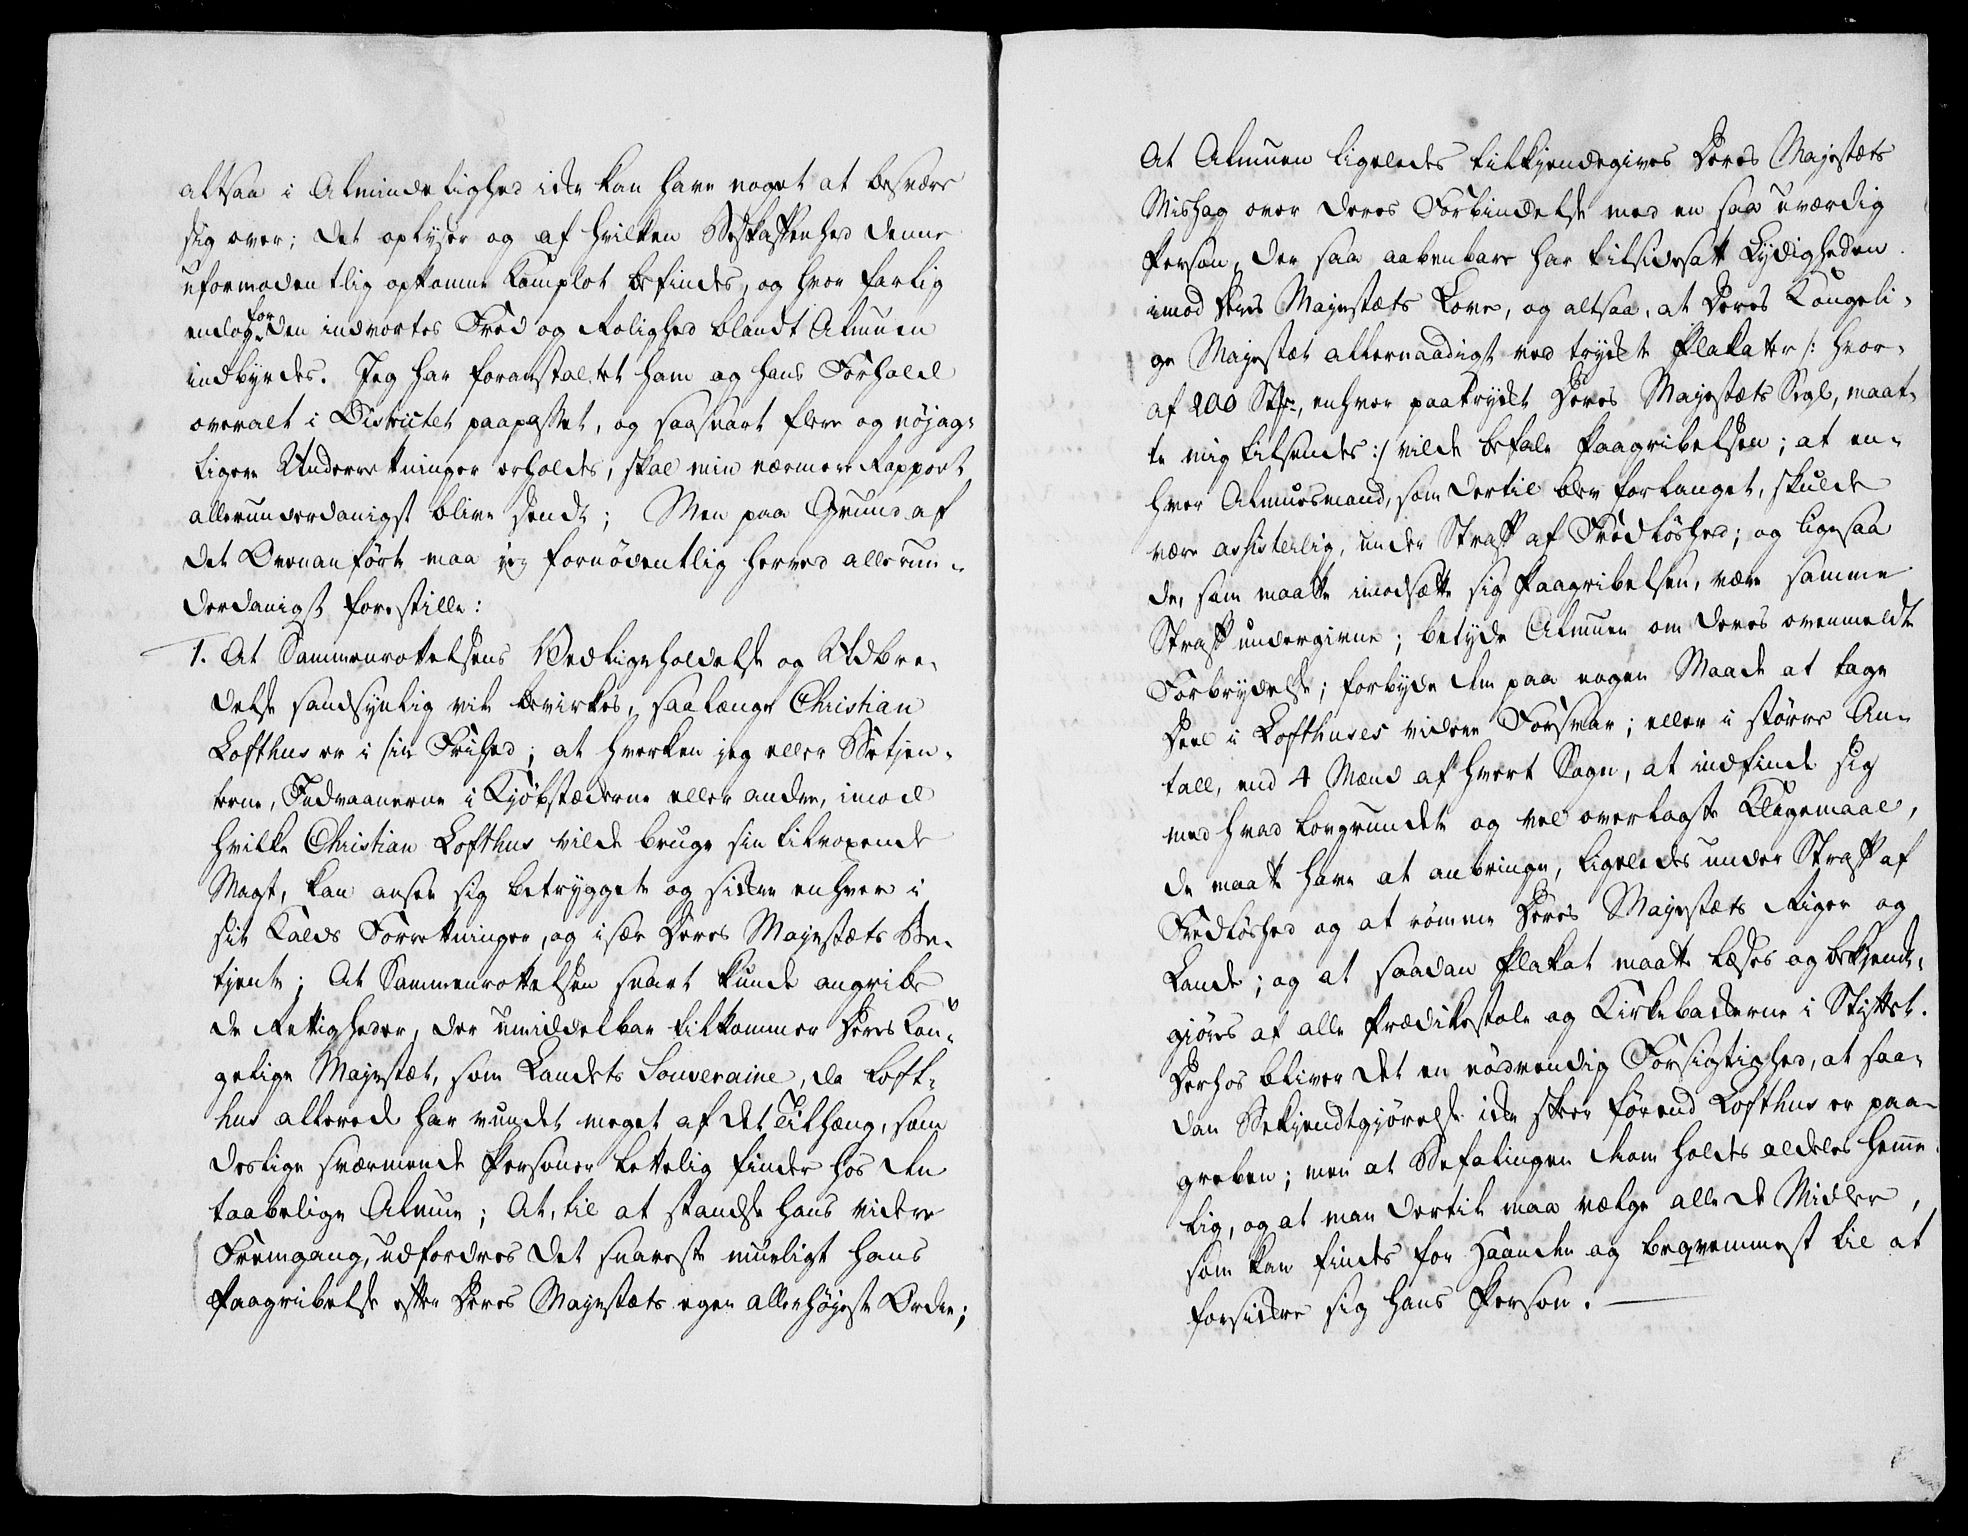 altsaa i Almindelighed ikke kan have noget at besvære
sig over; det oplyser og af hvilken Beskaffenhed denne
uformodentlig opkomne Komplot befindes, og hvor farlig
endog for den indvortes Fred og Rolighed blandt Almuen
indbyrdes. Jeg har foranstaltet ham og hans Forhold
overalt i Districtet paapasset, og saasnart flere og nöjag-
tigere Underretninger erholdes, skal min nærmere Rapport
allerunderdanigst blive sendt; Men paa Grund af
det Ovenanförte maa jeg fornödentlig herved allerun-
derdanigst forestille:
1. At Sammenrottelsens Vedligeholdelse og Udbre-
delse sandsynlig vil bevirkes, saalænge Christian
Lofthus er i sin Frihed; at hverken jeg eller Betjen-
terne, Indvaanerne i Kjöbstæderne eller andre, imod
hvilke Christian Lofthus vilde bruge sin tilvoxende
Magt, kan ansee sig betrygget og sikker enhver i
sit Kalds Forretninger, og især Deres Majestæts Be-
tjente; At Sammenrottelsen snart kunde angribe
de Rettigheder, der umiddelbar tilkommer Deres Kon-
gelige Majestæt, som Landets Souveraine, da Loft-
hus allerede har vundet meget af det Tilhæng, som
deslige sværmende Personer lettelig finder hos den
taabelige Almue; At, til at standse hans videre
Fremgang, udfordres det snareste mueligt hans
Paagribelse efter Deres Majestæts egen allerhöjeste Ordre;
At Almuen ligeledes tilkjendegives Deres Majestæts
Mishag over deres Forbindelse med en saa uværdig
Person, der saa aabenbare har tilsidesatt Lydigheden
imod Deres Majestæts Love, og altsaa, at Deres Kongeli-
ge Majestæt allernaadigst ved trykte Plakater /: hvor-
af 200 Stkr, enhver paatrykt Deres Majestæts Segl, maat-
te mig tilsendes :/ vilde befale Paagribelsen; at en-
hver Almuesmand, som dertil blev forlanget, skulde
være assisterlig, under Straff af Fredlöshed; og ligesaa
de, som maatte imodsætte sig Paagribelsen, være samme
Straff undergivne; betyde Almuen om deres ovenmeldte
Forbrydelse; forbyde dem paa nogen Maade at tage
Deel i Lofthuses videre Forsvar; eller i större An-
tall, end 4 Mænd af hvert Sogn, at indfinde sig
med hvad lovgrundede og vel overlagte Klagemaal,
de maatte have at anbringe, ligeledes under Straff af
Fredlöshed og at römme Deres Majestæts Riger og
Lande; og at saadan Plakat maatte læses og bekjendt-
gjöres af alle Prædikestole og Kirkebakkerne i Stiftet.
Derhos bliver det en nödvendig Forsigtighed, at saa-
dan Bekjendtgjörelse ikke skeer förend Lofthus er paa-
greben; men at Befalingen derom holdes aldeles hemme-
lig, og at man dertil maa vælge alle de Midler,
som kan findes for Haanden og beqvemmest til at
forsikkre sig hans Person.